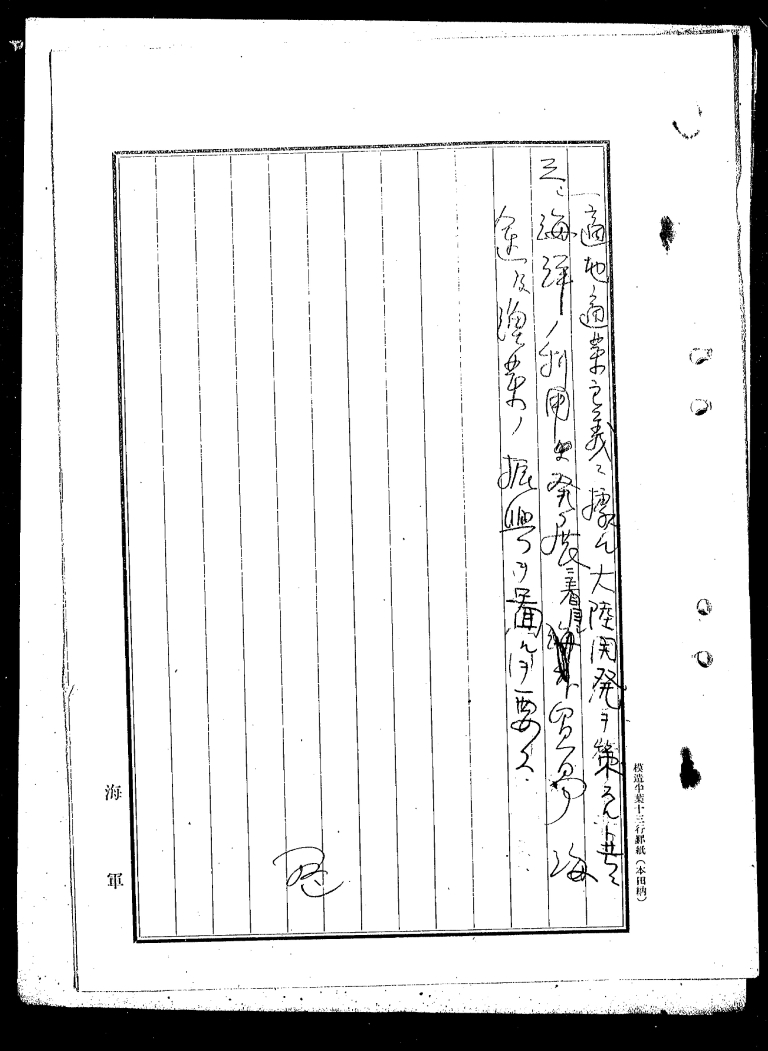 適地適業主義ニ據ル大陸開発ヲ策スルト共ニ
三、海洋ノ利用発展ニ着眼シ貿易海
運及漁業ノ振興ヲ図ルヲ要ス
終
模造半葉十三行罫紙(本田納)
海軍